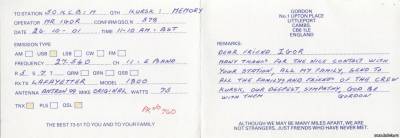 TO STATION 30.K.L.B: M QTH KURSK: MEMORY
OPERATOR MR IGOR CONFIRM QSO.N 378
DATE 20-10-01 TIME 11-10 AM. AST
EMISSION TYPE
AM USB LSB CW FM
FREQUENCY 27-560 CH 11. E BAND
R.S. 5.27 T GRM GBM RCD
PKTS LAFAYETTER MODEL 1800
ANTENNA ANTRON 99 MIKE ORIGINAL WATTS 75
TNX PLS QSL
THE BEST 73-51 TO YOU AND TO YOUR FAMILY
GORDON
No.1 UPTON PLACE
LITTLEPORT
CAMBS.
CB6 1LE
ENGLAND
REMARKS:
DEAR FRIEND IGOR
MANY THANKS FOR THE NICE CONTACT WITH
YOUR STATION, ALL MY FAMILY, SEND TO
ALL THE FAMILY AND FRIENDS OF THE CREW
KURSK, OUR DEEPEST SIMPATHY, GOD BE
WITH THEM GORDON
ALTHOUGH WE MAY BE MANY MILES APART, WE ARE
NOT STRANGERS, JUST FRIENDS WHO HAVE NEVER MET.